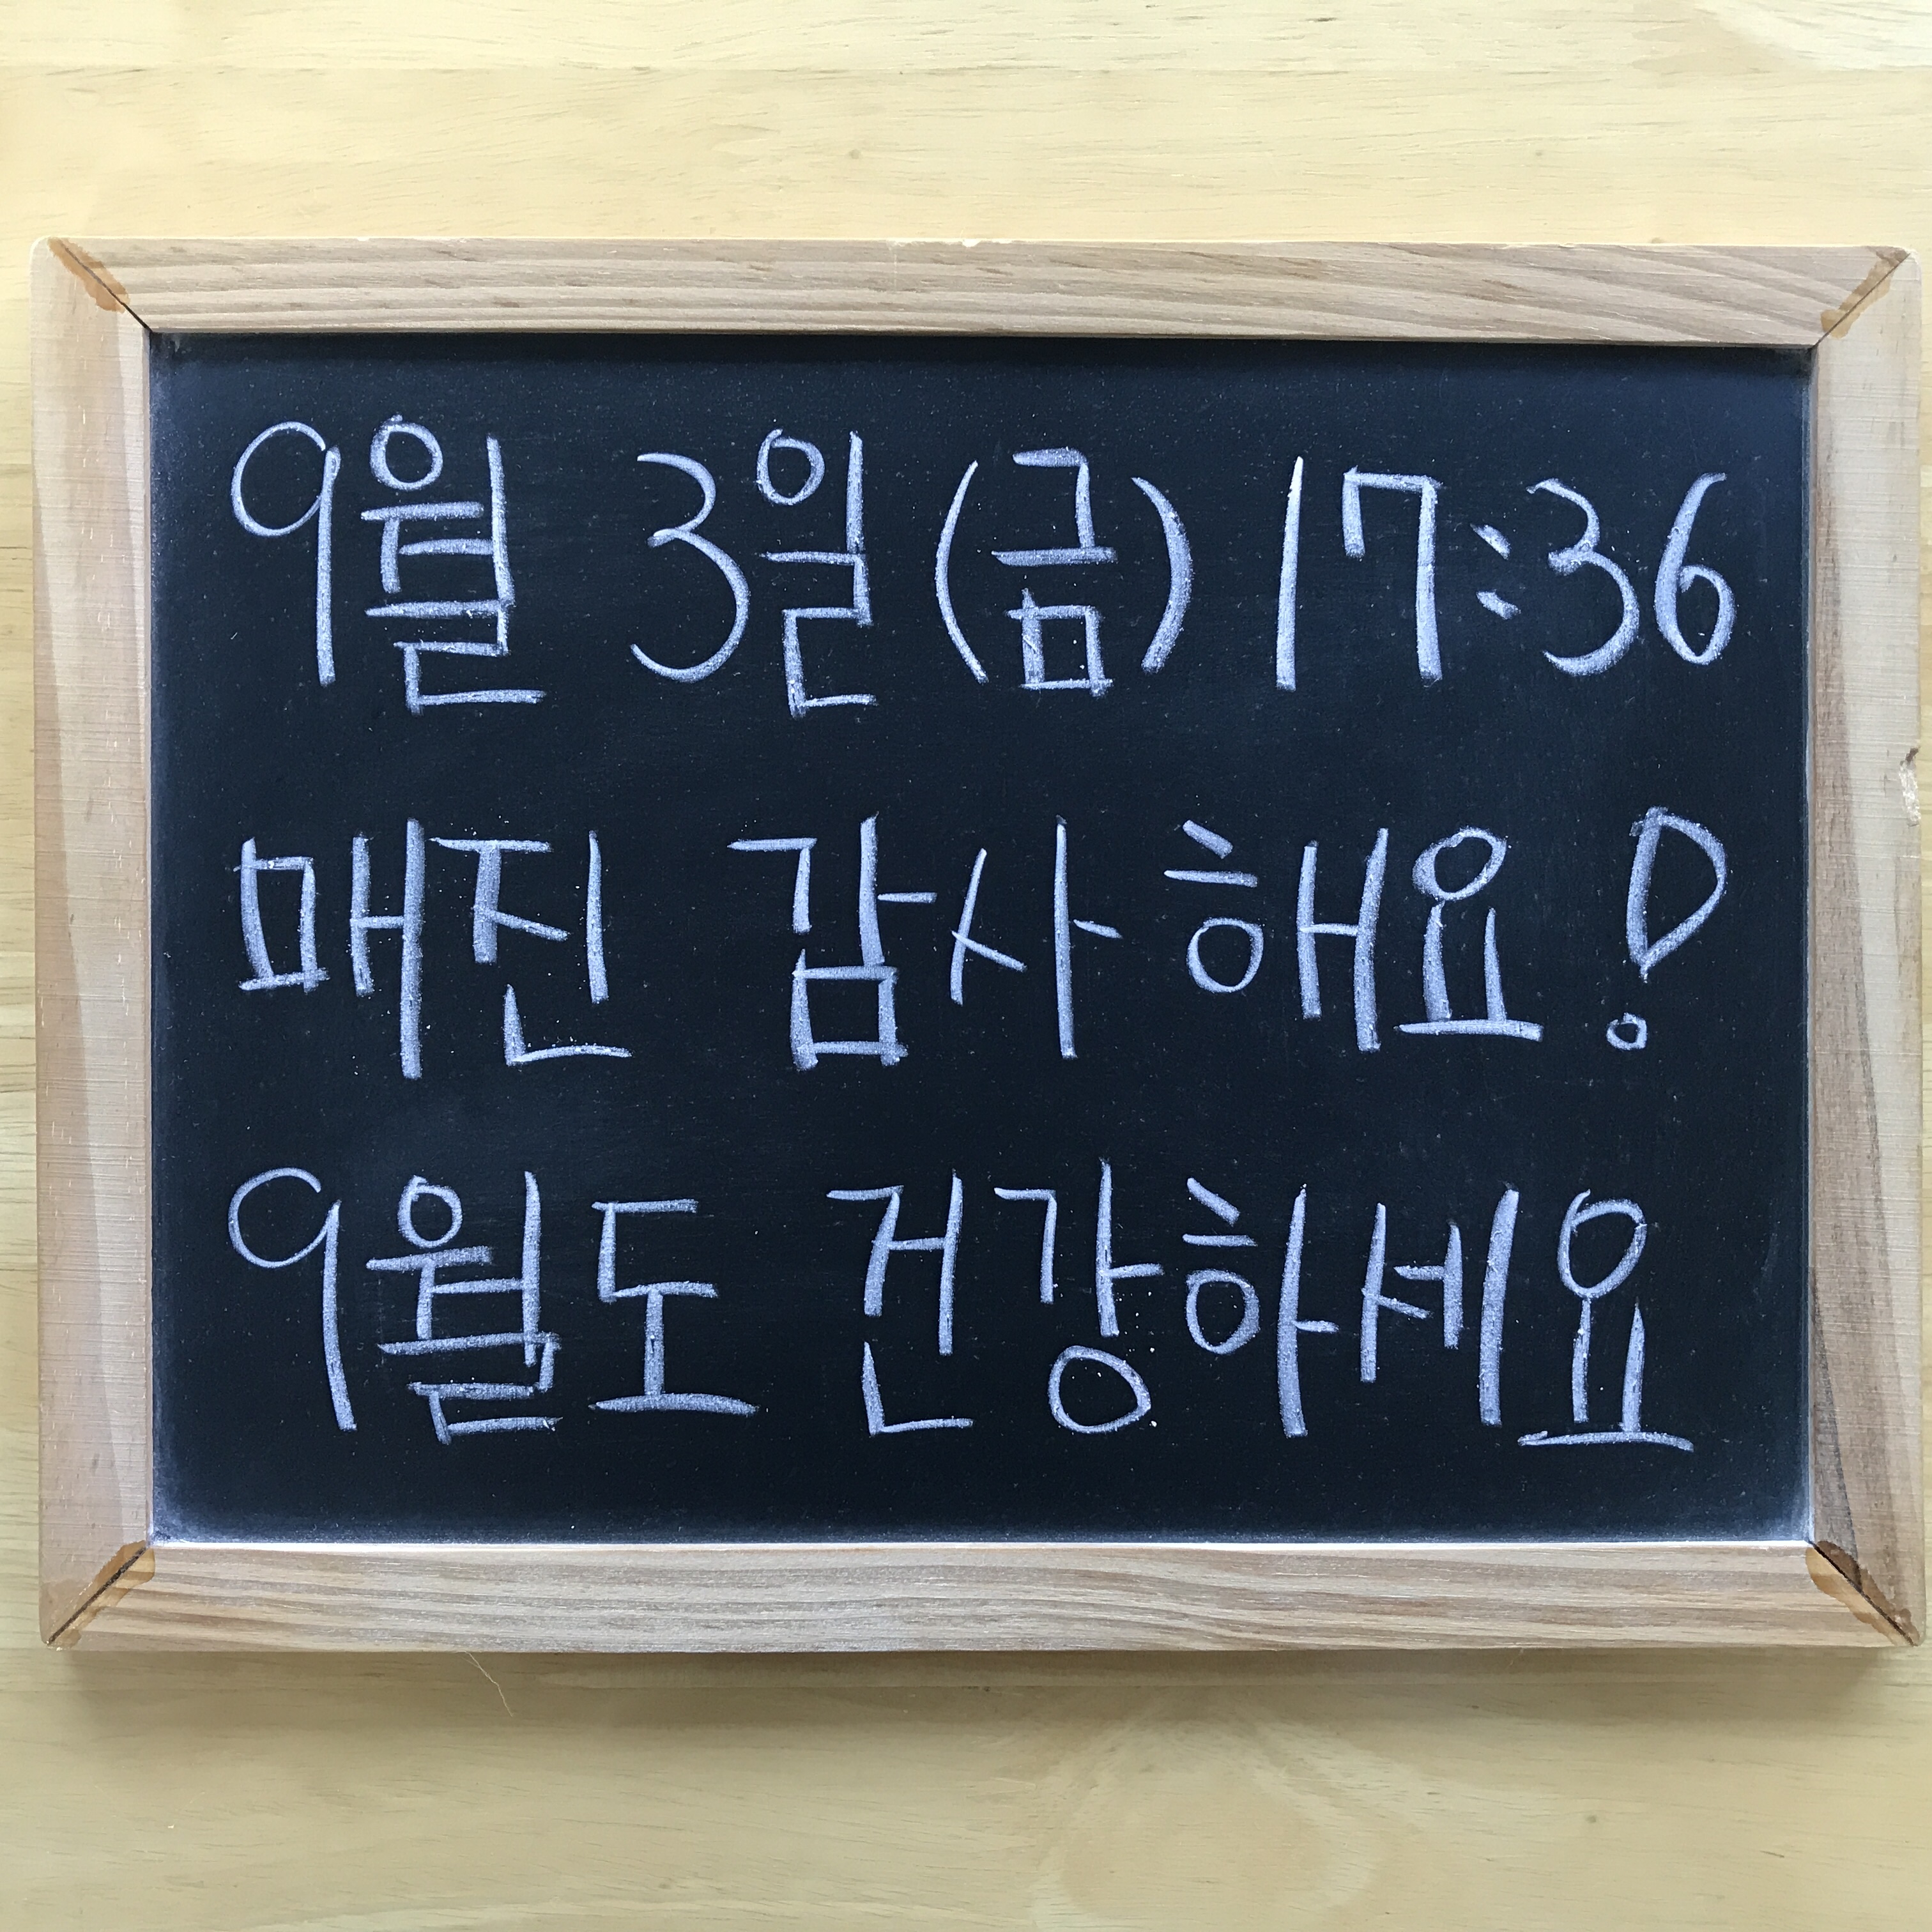 9월 3일(금) 17:36
매진 감사해요!
9월도 건강하세요